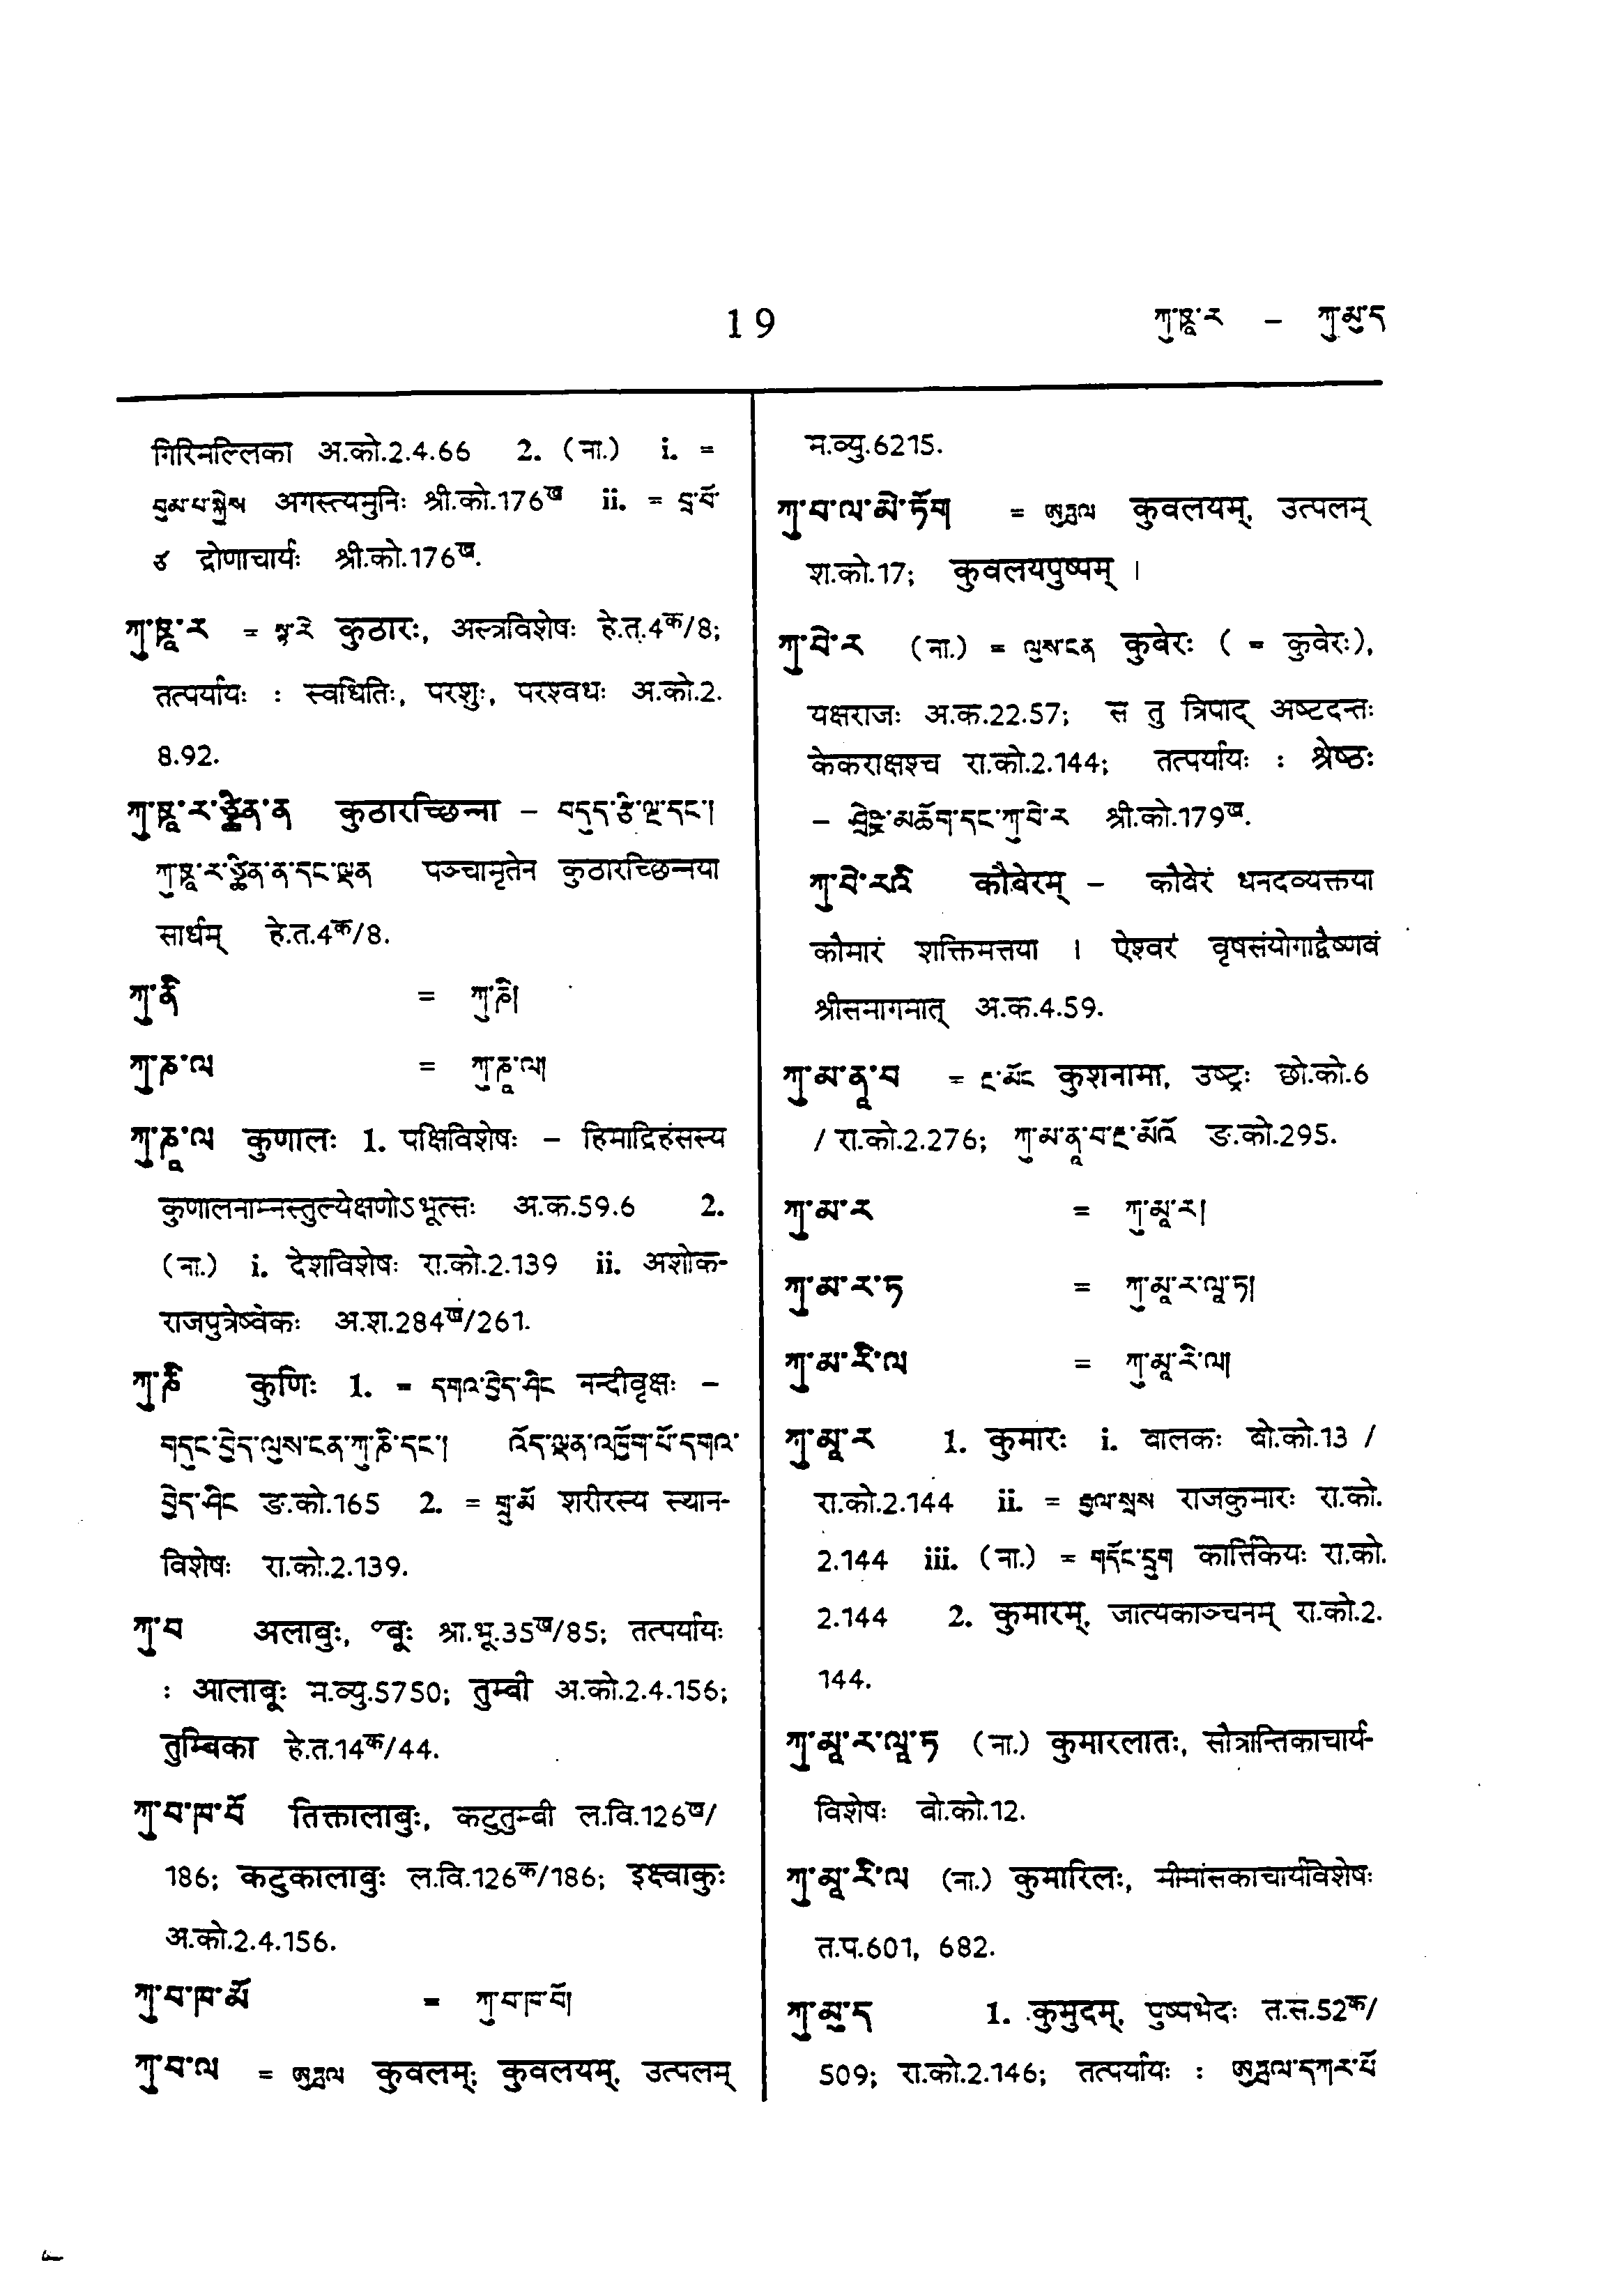 19
ཀུ་ཋཱ་ར – ཀུ་མུ་ད
गिरिमल्लिका अ.को.2.4.66 2. (ना.) i. =
བུམ་པ་སྐྱེས अगस्त्यमुनिः श्री.को.176ख ii. = བྲ་བོ་
ཙ द्रोणाचार्यः श्री.को.176ख.
ཀུ་ཋཱ་ར = སྟ་རེ कुठारः, अस्त्रविशेषः हे.त.4क/8;
तत्पर्यायः : स्वधितिः, परशुः, परश्वधः अ.को.2.
8.92.
ཀུ་ཋཱ་ར་ཙྪིནྣ་ན कुठारच्छिन्ना – བདུད་རྩི་ལྔ་དང་།
ཀུ་ཋཱ་ར་ཙྪིན་ན་དང་ལྡན पञ्चामृतेन कुठारच्छिन्नया
सार्धम् हे.त.4क/8.
ཀུ་ནི = ཀུ་ཎི།
ཀུ་ཎ་ལ = ཀུ་ཎཱ་ལ།
ཀུ་ཎཱ་ལ कुणालः 1. पक्षिविशेषः – हिमाद्रिहंसस्य
कुणालनाम्नस्तुल्येक्षणोऽभूत्सः अ.क.59.6 2.
(ना.) i. देशविशेषः रा.को.2.139 ii. अशोक-
राजपुत्रेष्वेकः अ.श.284ख/261.
ཀུ་ཎི कुणिः 1. = དགའ་བྱེད་ཤིང नन्दीवृक्षः –
གདུང་བྱེད་ལུས་ངན་ཀུ་ཎི་དང་། འོད་ལྡན་འཁྱོག་པོ་དགའ་
བྱེད་ཤིང ङ.को.165 2. = གྲུ་མོ शरीरस्य स्थान-
विशेषः रा.को.2.139.
ཀུ་བ अलाबुः, ०बूः श्रा.भू.35ख/85; तत्पर्यायः
: आलाबूः म.व्यु.5750; तुम्बी अ.को.2.4.156;
तुम्बिका हे.त.14क/44.
ཀུ་བ་ཁ་བོ तिक्तालाबुः, कटुतुम्बी ल.वि.126ख/
186; कटुकालाबुः ल.वि.126क/186; इक्ष्वाकुः
अ.को.2.4.156.
ཀུ་བ་ཁ་མོ = ཀུ་བ་ཁ་བོ།
ཀུ་བ་ལ = ཨུཏྤལ कुवलम्; कुवलयम्, उत्पलम्
म.व्यु.6215.
ཀུ་བ་ལ་མེ་ཏོག = ཨུཏྤལ कुवलयम्, उत्पलम्
श.को.17; कुवलयपुष्पम् ।
ཀུ་བེ་ར (ना.) = ལུས་ངན कुबेरः ( = कुवेरः),
यक्षराजः अ.क.22.57; स तु त्रिपाद् अष्टदन्तः
केकराक्षश्च रा.को.2.144; तत्पर्यायः : श्रेष्ठः
– ཤྲེཥྛ་མཆོག་དང་ཀུ་བེ་ར श्री.को.179ख.
ཀུ་བེ་རའི कौबेरम् – कौबेरं धनदव्यक्तया
कौमारं शक्तिमत्तया । ऐश्वरं वृषसंयोगाद्वैष्णवं
श्रीसमागमात् अ.क.4.59.
ཀུ་མ་ནཱ་བ = རྔ་མོང कुशनामा, उष्ट्रः छो.को.6
/ रा.को.2.276; ཀུ་མ་ནཱ་བ་རྔ་མོའོ ङ.को.295.
ཀུ་མ་ར = ཀུ་མཱ་ར།
ཀུ་མ་ར་ཏ = ཀུ་མཱ་ར་ལཱ་ཏ།
ཀུ་མ་རི་ལ = ཀུ་མཱ་རི་ལ།
ཀུ་མཱ་ར 1. कुमारः i. बालकः बो.को.13 /
रा.को.2.144 ii. = རྒྱལ་སྲས राजकुमारः रा.को.
2.144 iii. (ना.) = གདོང་དྲུག कार्त्तिकेयः रा.को.
2.144 2. कुमारम्, जात्यकाञ्चनम् रा.को.2.
144.
ཀུ་མཱ་ར་ལཱ་ཏ (ना.) कुमारलातः, सौत्रान्तिकाचार्य-
विशेषः बो.को.12.
ཀུ་མཱ་རི་ལ (ना.) कुमारिलः, मीमांसकाचार्यविशेषः
त.प.601, 682.
ཀུ་མུ་ད 1. कुमुदम्, पुष्पभेदः त.स.52क/
509; रा.को.2.146; तत्पर्यायः : ཨུཏྤལ་དཀར་པོ